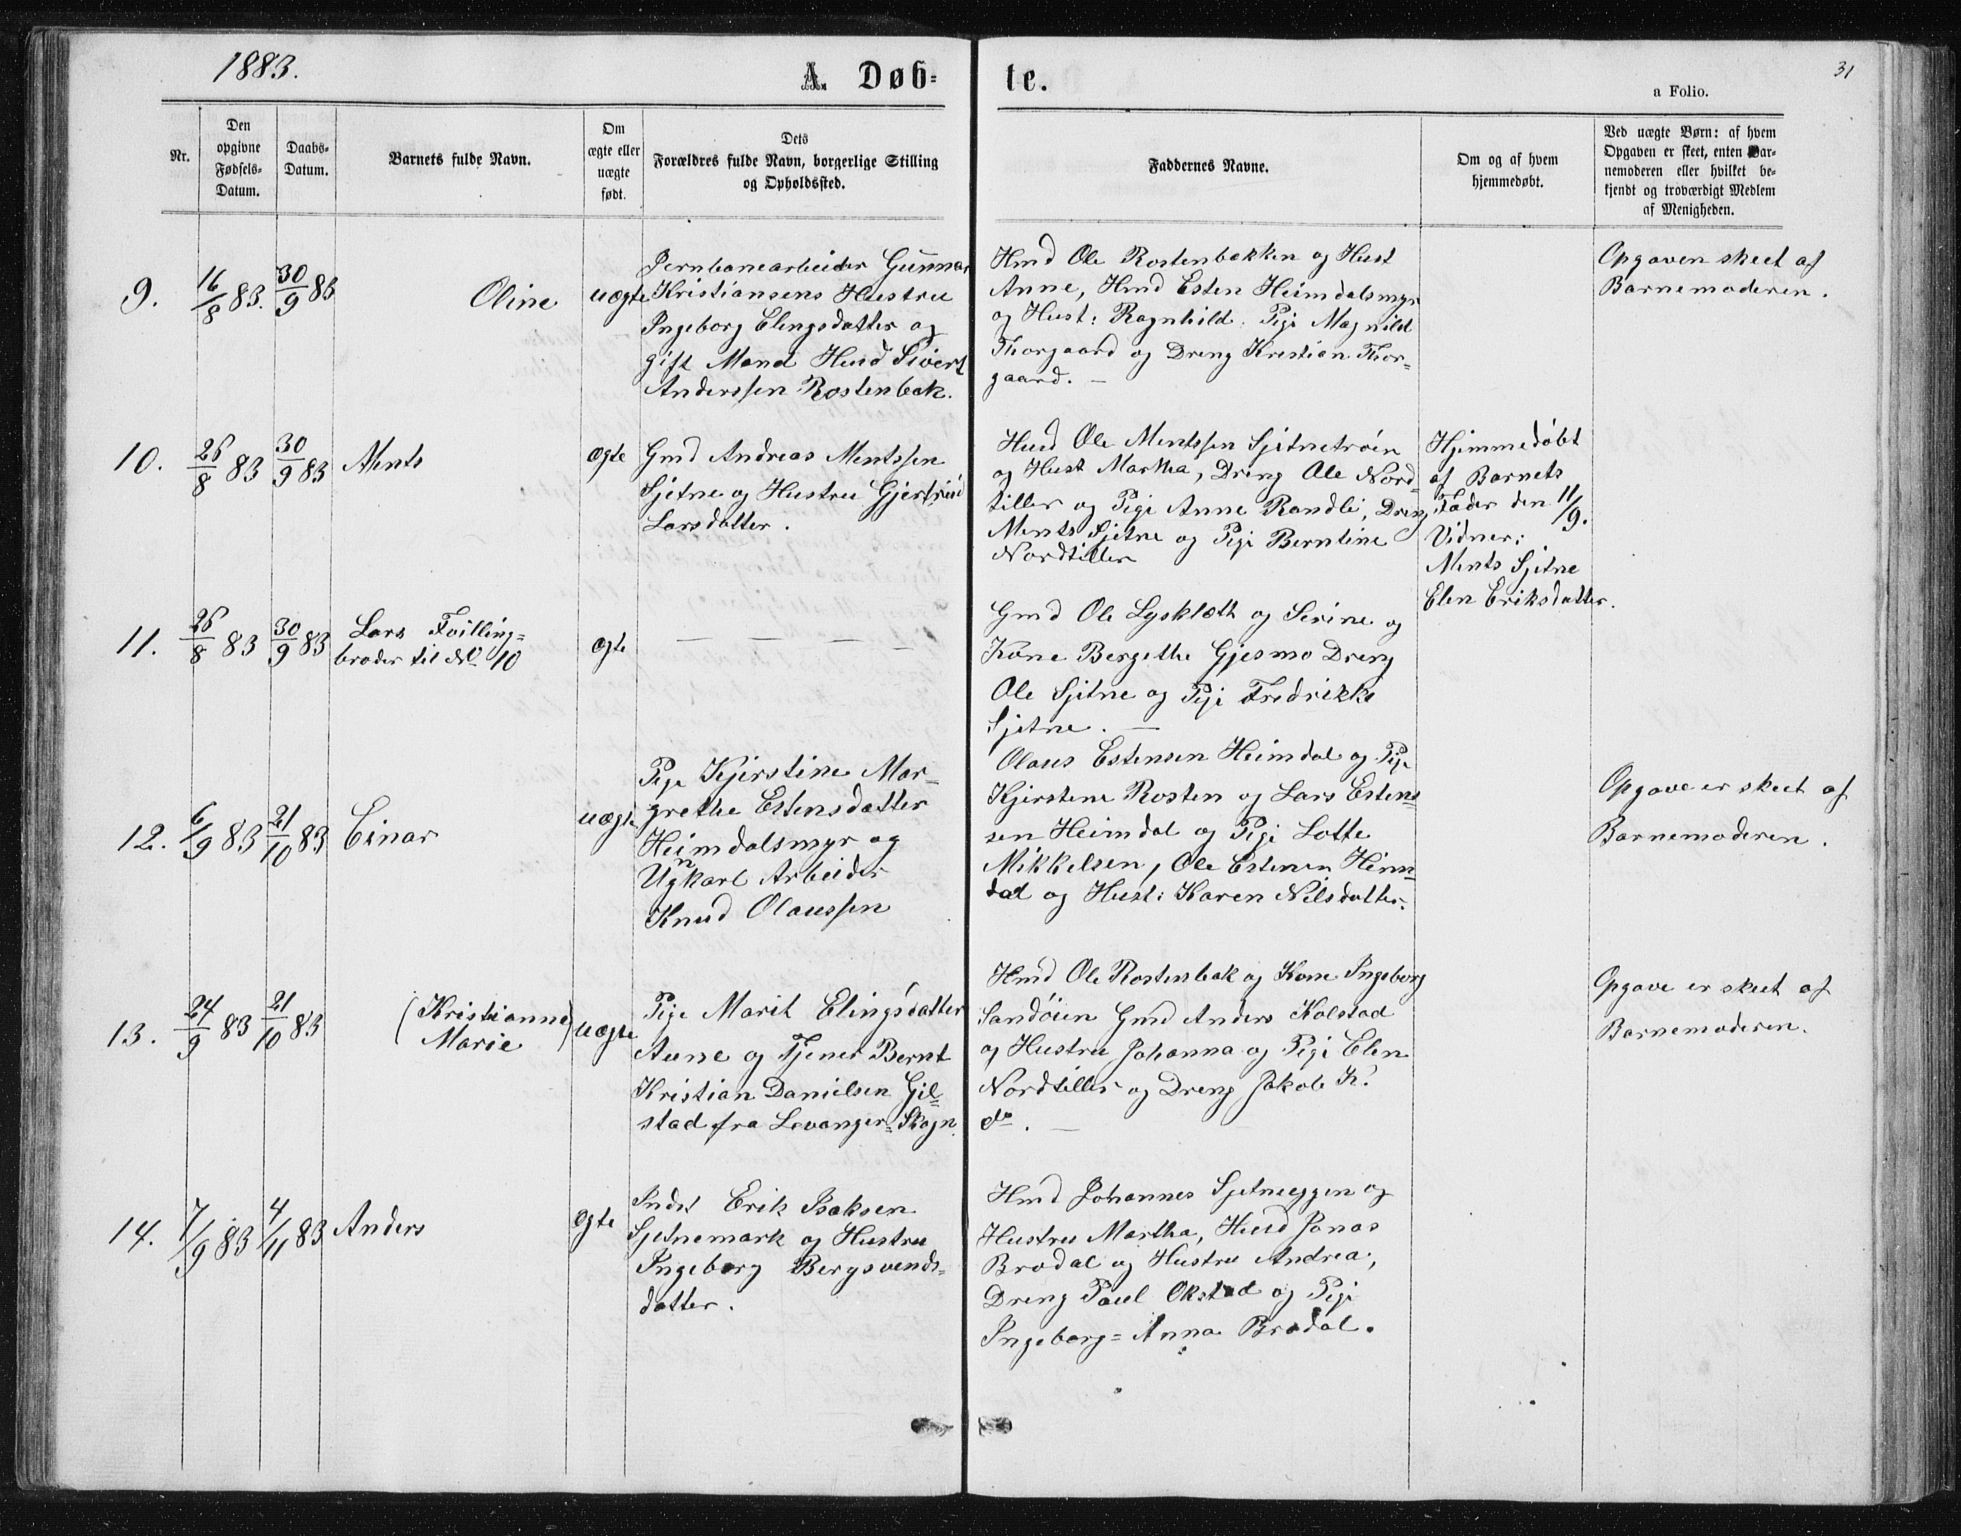 1883.
A. Døb-
te.
31
a Folio.
Nr.
Den
opgivne
Fødsels-
Datum.
Daabs-
Datum.
Barnets fulde Navn.
Om
ægte eller
uægte
født.
Dets
Forældres fulde Navn, borgerlige Stilling
og Opholdssted.
Faddernes Navne.
Om og af hvem
hjemmedøbt.
Ved uægte Børn: af hvem
Opgaven er skeet, enten Bar-
nemoderen eller hvilket be-
kjendt og troværdigt Medlem
af Menigheden.
9.
16/8 83.
30/9 83
Oline
uægte
Jernbanearbeider Gunnar
Kristiansens Hustru
Ingeborg Elingsdatter og
gift Mand Husd Sivert
Anderssen Rostenbak.
Hmd Ole Rostenbakken og Hust
Anne, Hmd Esten Heimdalsmyr
og Hust: Ragnhild. Pige Magnild
Thorgaard og Dreng Kristian Thor-
gaard. —
Opgaven skeet af
Barnemoderen.
10.
26/8 83
30/9 83
Ments
ægte
Gmd Andreas Mentssen
Sjetne og Hustru Gjertrud
Larsdatter.
Husd Ole Mentssen Sjetnetrøen
og Hust Martha, Dreng Ole Nord-
tiller og Pige Anne Randli, Dreng
Ments Sjetne og Pige Berntine
Nordtiller
Hjemmedöbt
af Barnets
Fader den 11/9.
Vidner:
Ments Sjetne
Elen Eriksdatter.
11.
26/8 83
30/9 83
Lars Tvilling-
broder til No 10
ægte
— — — —
Gmd Ole Lysklæth og Serine og
Kone Bergethe Gjesmo Dreng
Ole Sjetne og Pige Fredrikke
Sjetne. —
12.
6/9 83
21/10 83
Einar
uægte
Pige Kjerstine Mar-
grethe Estensdatter
Heimdalsmyr og
Ungkarl Arbeider
Knud Olaussen
Olaus Estensen Heimdal og Pige
Kjerstene Rosten og Lars Esten-
sen Heimdal og Pige Lotte
Mikkelsen, Ole Estensen Heim-
dal og Hust: Karen Nilsdatter.
Opgave er skeet af
Barnemoderen.
13.
24/9 83
21/10 83
(Kristianne)
Marie
uægte
Pige Marit Elingsdatter
Aune og Tjener Bernt
Kristian Danielsen Gil-
stad fra Levanger-Skogn.
Hmd Ole Rostenbak og Kone Ingeborg
Sandöien Gmd Anders Kolstad
og Hustru Johanna og Pige Elen
Nordtiller og Dreng Jakob K.
do. —
Opgave er skeet af
Barnemoderen.
14.
7/9 83
4/11 83
Anders
ægte
Indst Erik Isaksen
Sjetnemark og Hustru
Ingeborg Bergsvends-
datter.
Hmd Johannes Sjetneeggen og
Hustru Martha, Husd Jonas
Brodal og Hustru Andrea,
Dreng Paul Okstad og Pige
Ingeborg-Anna Brodal.